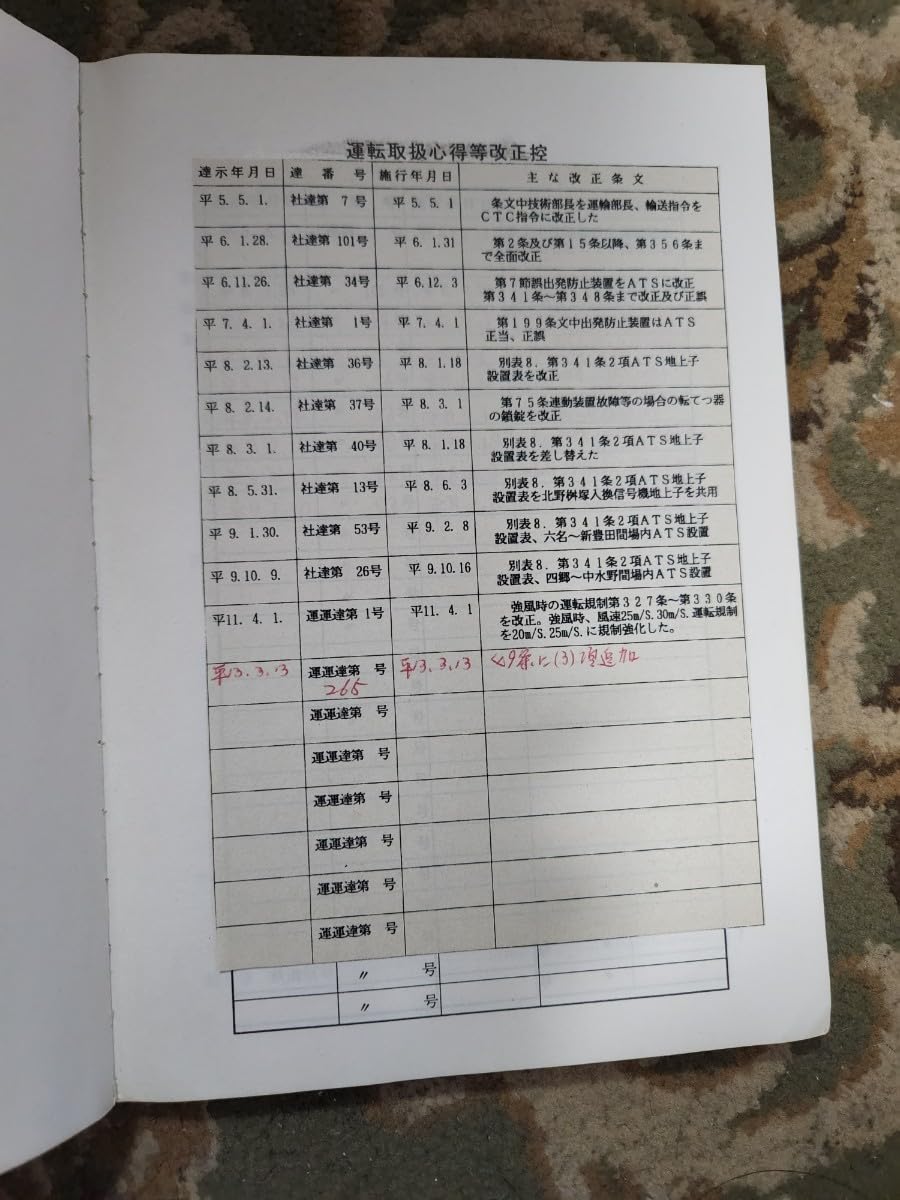 運転取扱心得等改正控
達示年月日 達番号 施行年月日 主な改正条文
平 5. 5. 1. 社達第 7号 平 5. 5. 1 条文中技術部長を運輸部長、輸送指令を
CTC指令に改正した
平 6. 1.28. 社達第 101号 平 6. 1.31 第2条及び第15条以降、第356条ま
で全面改正
平 6.11.26. 社達第 34号 平 6.12. 3 第7節誤出発防止装置をATSに改正
第341条～第348条まで改正及び正誤
平 7. 4. 1. 社達第 1号 平 7. 4. 1 第199条文中出発防止装置はATS
正当、正誤
平 8. 2.13. 社達第 36号 平 8. 1.18 別表8．第341条2項ATS地上子
設置表を改正
平 8. 2.14. 社達第 37号 平 8. 3. 1 第75条連動装置故障等の場合の転てつ器
の鎖錠を改正
平 8. 3. 1. 社達第 40号 平 8. 1.18 別表8．第341条2項ATS地上子
設置表を差し替えた
平 8. 5.31. 社達第 13号 平 8. 6. 3 別表8．第341条2項ATS地上子
設置表を北野桝塚入換信号機地上子を共用
平 9. 1.30. 社達第 53号 平 9. 2. 8 別表8．第341条2項ATS地上子
設置表、六名～新豊田間場内ATS設置
平 9.10. 9. 社達第 26号 平 9.10.16 別表8．第341条2項ATS地上子
設置表、四郷～中水野間場内ATS設置
平11. 4. 1. 運運達第 1号 平11. 4. 1 強風時の運転規制第327条～第330条
を改正。強風時、風速25m/S.30m/S.運転規制
を20m/S.25m/S.に規制強化した。
平13.3.13 運運達第 号 平13.3.13 条に(3)項追加
265
運運達第 号
運運達第 号
運運達第 号
運運達第 号
運運達第 号
運運達第 号
〃 号
〃 号